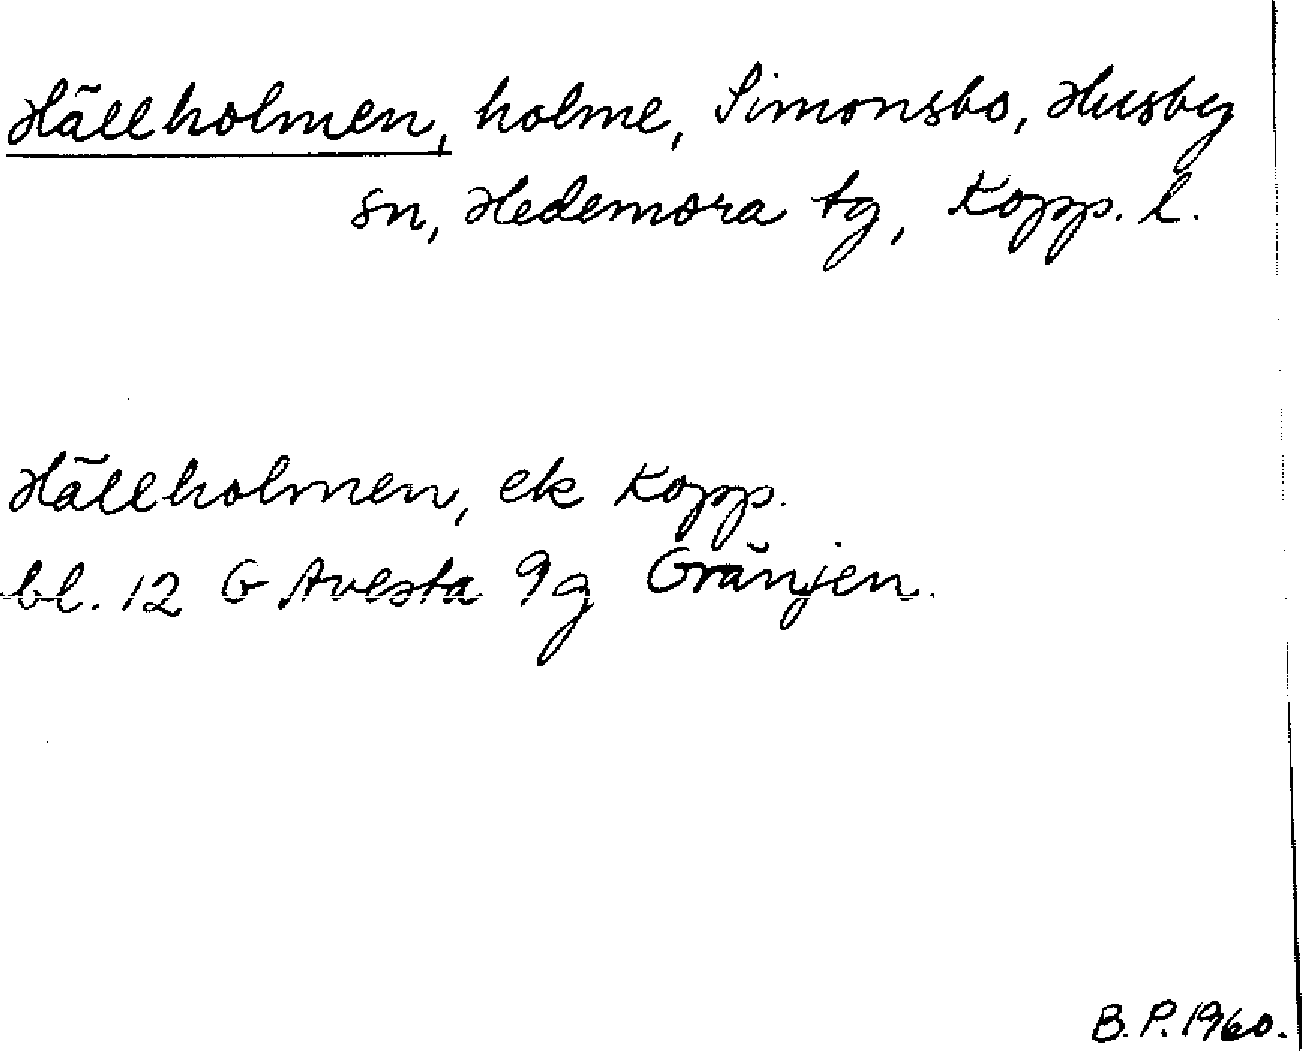 Hällholmen, holme, Simonsbo, Husby
sn, Hedemora tg, Kopp. l.
Hällholmen, ek Kopp.
bl. 12 G Avesta 9g Gränjen.
B.P. 1960.